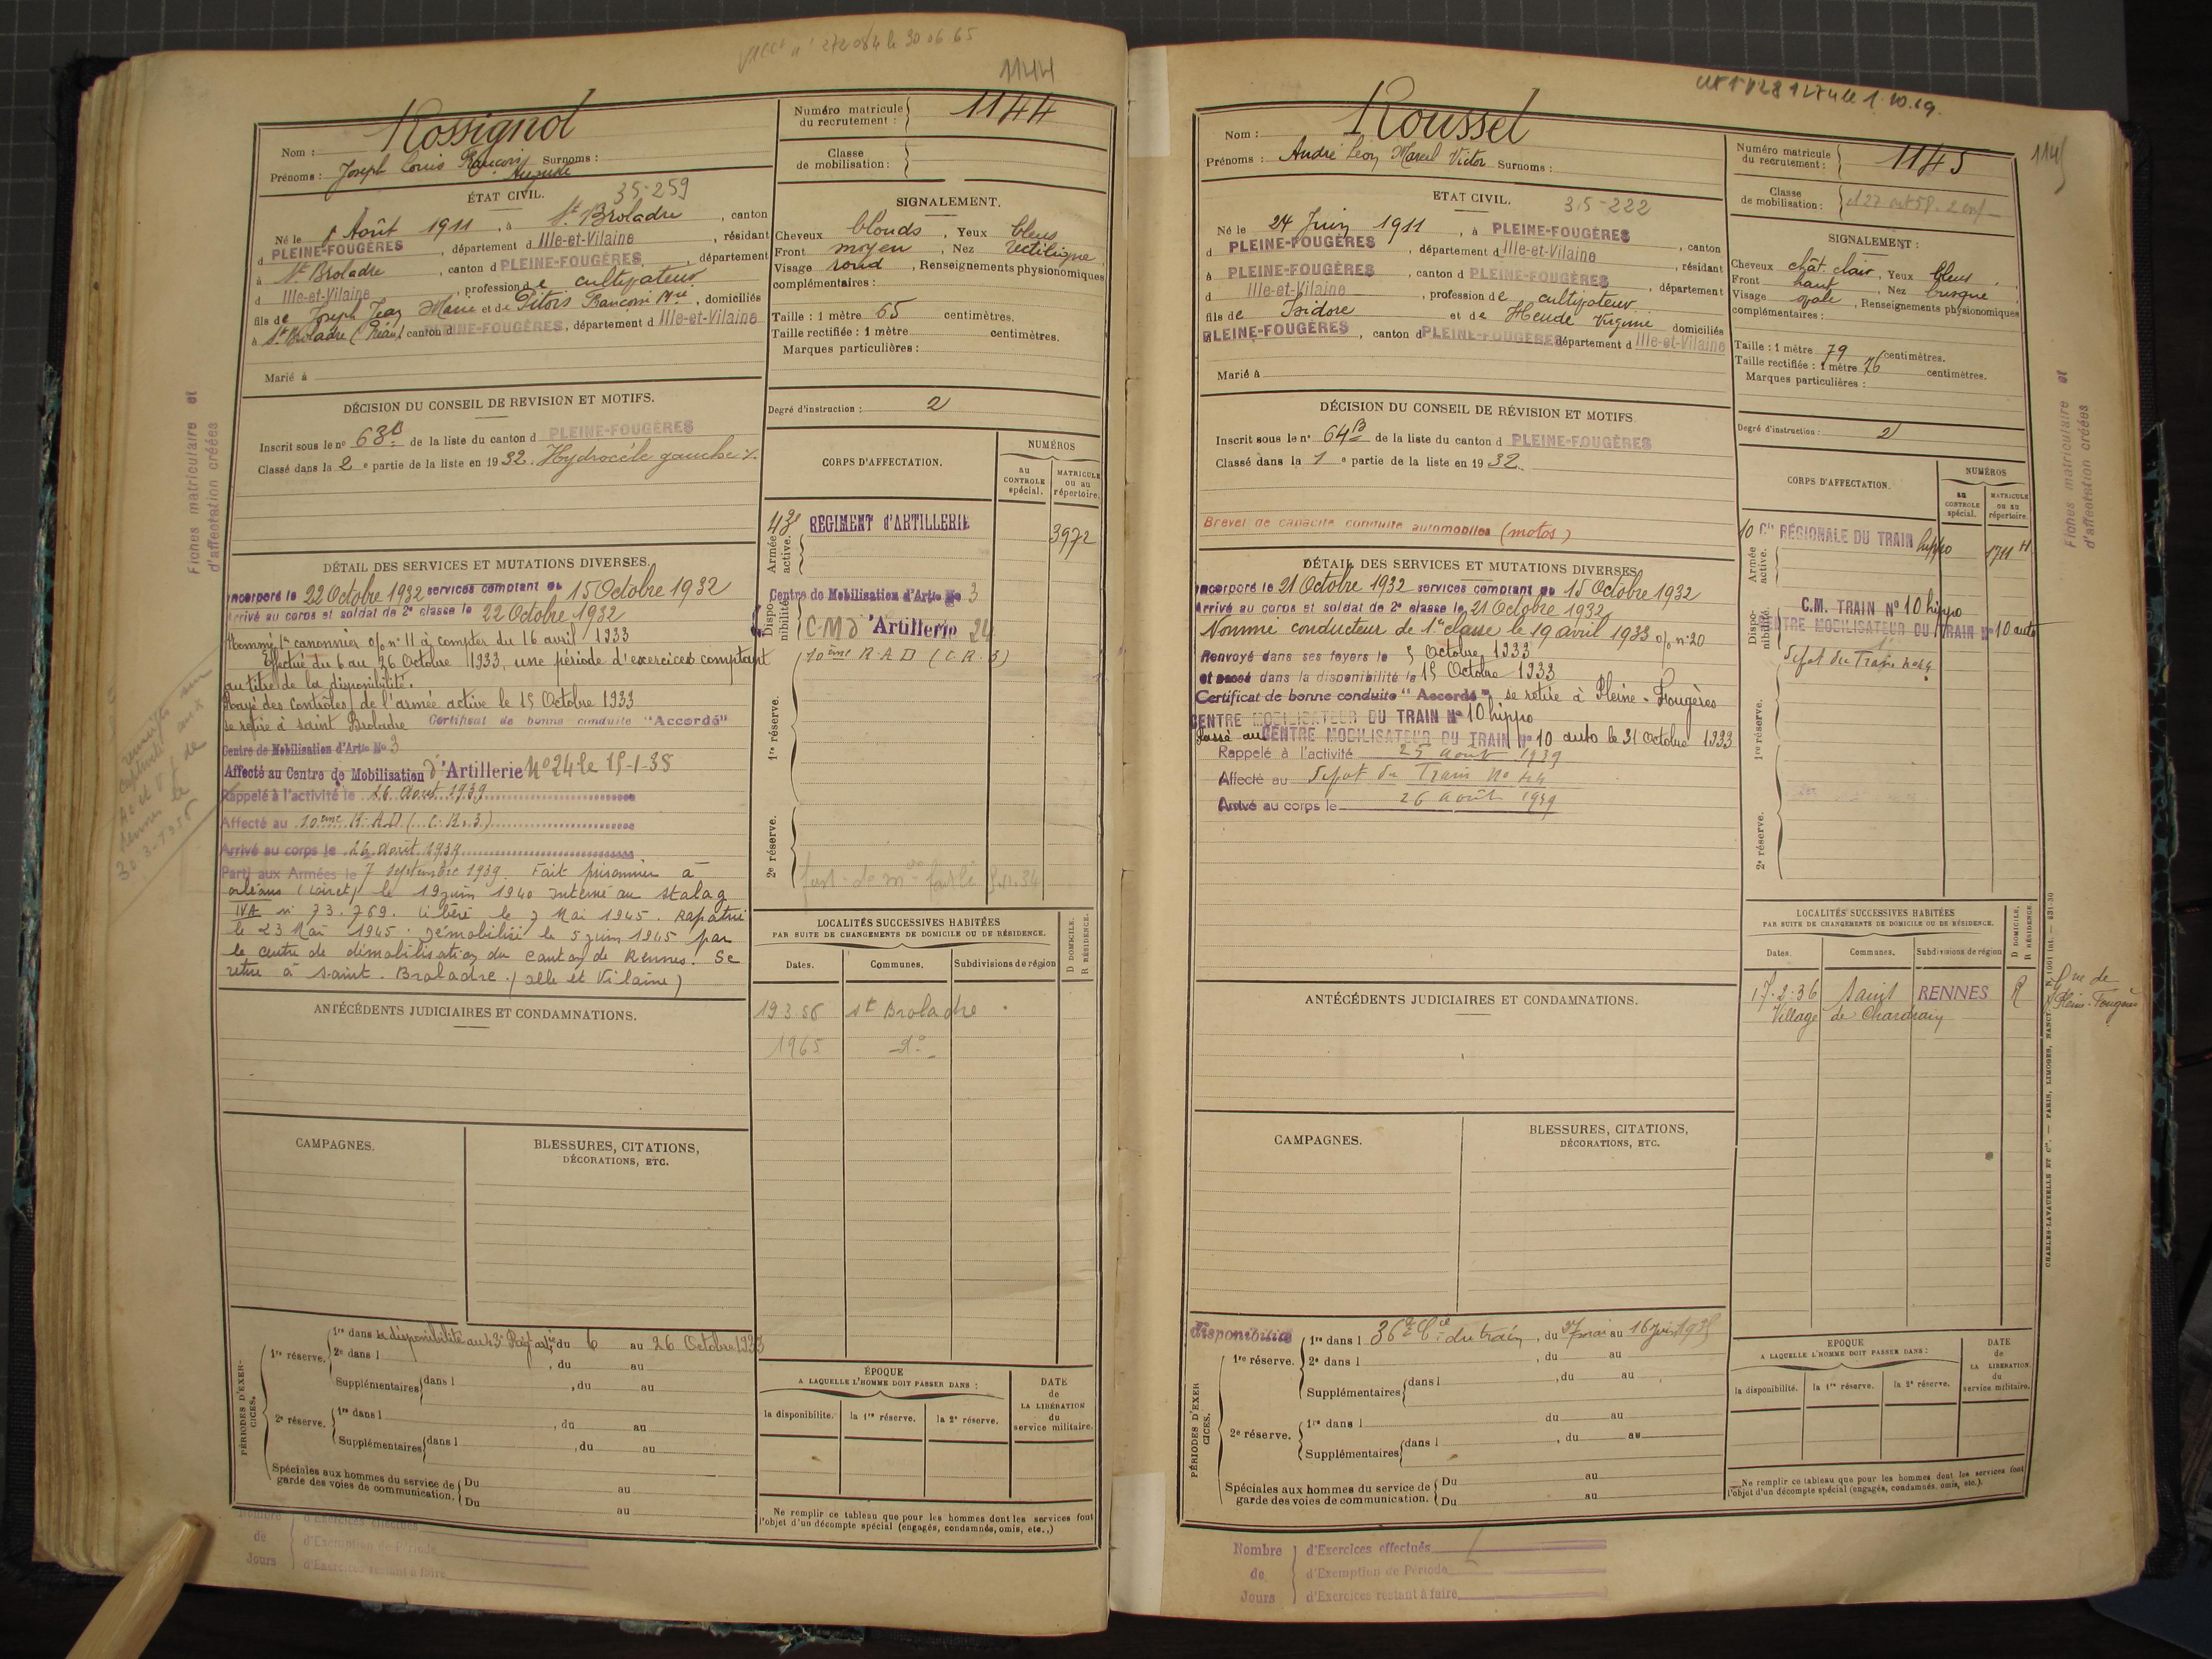 272084 le 30.06.65
1144
Nom : Rossignol
Prénoms : Joseph Louis François Surnoms :
Auguste
Numéro matricule du recrutement : 1144
Classe de mobilisation :
ÉTAT CIVIL. 35-259
Né le 1 Août 1911, à St. Broladre, canton
d PLEINE-FOUGÈRES, département d Ille-et-Vilaine, résidant
à St. Broladre, canton d PLEINE-FOUGÈRES, département
d Ille-et-Vilaine, profession de cultivateur
fils de Joseph Jean Marie et de Pitois Françoise Mie, domiciliés
à St. Broladre canton d PLEINE-FOUGÈRES, département d Ille-et-Vilaine
Marié à
SIGNALEMENT.
Cheveux blonds, Yeux bleus
Front moyen, Nez rectiligne
Visage rond, Renseignements physionomiques
complémentaires :
Taille : 1 mètre 65 centimètres.
Taille rectifiée : 1 mètre centimètres.
Marques particulières :
DÉCISION DU CONSEIL DE REVISION ET MOTIFS.
Inscrit sous le no 63B de la liste du canton d PLEINE-FOUGÈRES
Classé dans la 2e partie de la liste en 1932. Hydrocèle gauche
Degré d'instruction : 2
CORPS D'AFFECTATION.
NUMÉROS
au CONTROLE spécial.
MATRICULE ou au répertoire.
Armée active.
43e REGIMENT d'ARTILLERIE 3972
Disponibilité
Centre de Mobilisation d'Artie No 3
C.M d'Artillerie 24
1re réserve.
10ème R.A.D (C.R.3)
2e réserve.
DÉTAIL DES SERVICES ET MUTATIONS DIVERSES.
Incorporé le 22 Octobre 1932 services comptant du 15 Octobre 1932
Arrivé au corps et soldat de 2e classe le 22 Octobre 1932
Nommé 1er canonnier o/o n° 11 à compter du 16 avril 1933
Effectué du 6 au 26 Octobre 1933, une période d'exercices comptant
au titre de la disponibilité.
Rayé des contrôles de l'armée active le 15 Octobre 1933
se retire à saint Broladre Certificat de bonne conduite "Accordé"
Centre de Mobilisation d'Artie No 3
Affecté au Centre de Mobilisation d'Artillerie No 24 le 15-1-38
Rappelé à l'activité le 26 Août 1939
Affecté au 10eme R.A.D (C.R.3)
Arrivé au corps le 26 Août 1939
Parti aux Armées le 7 Septembre 1939. Fait prisonnier à
orléans (Loiret) le 19 juin 1940 Interné au Stalag
IVA n° 73.769. Libéré le 7 Mai 1945. Rapatrié
le 23 Mai 1945. Démobilisé le 5 juin 1945 par
le centre de démobilisation du canton de Rennes. Se
retire à saint-Broladre (Ille et Vilaine)
ANTÉCÉDENTS JUDICIAIRES ET CONDAMNATIONS.
LOCALITÉS SUCCESSIVES HABITÉES
PAR SUITE DE CHANGEMENTS DE DOMICILE OU DE RÉSIDENCE.
D DOMICILE. R RÉSIDENCE.
Dates. Communes. Subdivisions de région
19.3.56 St Broladre
1965 do
CAMPAGNES.
BLESSURES, CITATIONS,
DÉCORATIONS, ETC.
PÉRIODES D'EXERCICES.
1re réserve.
1re dans la disponibilité au 43e Régt artie du 6 au 26 Octobre 1933
2e dans l , du au
Supplémentaires dans l , du au
2e réserve.
1re dans l , du au
Supplémentaires dans l , du au
Spéciales aux hommes du service de garde des voies de communication.
Du au
Du au
ÉPOQUE
A LAQUELLE L'HOMME DOIT PASSER DANS :
la disponibilité. la 1re réserve. la 2e réserve.
DATE de LA LIBÉRATION du service militaire.
Ne remplir ce tableau que pour les hommes dont les services font
l'objet d'un décompte spécial (engagés, condamnés, omis, etc.,)
Nombre de Jours
d'Exercices effectués
d'Exemption de Période
d'Exercices restant à faire
Fiches matriculaire et
d'affectation créées
Nom : Roussel
Prénoms : André Léon Marcel Victor Surnoms :
Numéro matricule du recrutement : 1145
1145
Classe de mobilisation :
ETAT CIVIL. 35-222
Né le 24 Juin 1911, à PLEINE-FOUGÈRES
d PLEINE-FOUGÈRES, département d Ille-et-Vilaine, canton
à PLEINE-FOUGÈRES, canton d PLEINE-FOUGÈRES, résidant
d Ille-et-Vilaine, profession de cultivateur, département
fils de Isidore et de Heude Virginie domiciliés
PLEINE-FOUGÈRES, canton d PLEINE-FOUGÈRES département d Ille-et-Vilaine
Marié à
SIGNALEMENT :
Cheveux chât. clair, Yeux bleus
Front haut, Nez busqué
Visage ovale, Renseignements physionomiques
complémentaires :
Taille : 1 mètre 79 centimètres.
Taille rectifiée : 1 mètre 76 centimètres.
Marques particulières :
DÉCISION DU CONSEIL DE RÉVISION ET MOTIFS
Inscrit sous le no 64B de la liste du canton d PLEINE-FOUGÈRES
Classé dans la 1e partie de la liste en 1932.
Degré d'instruction : 2
Brevet de capacité conduite automobiles (motos)
CORPS D'AFFECTATION.
NUMÉROS
au CONTROLE spécial.
MATRICULE ou au répertoire.
Armée active.
10 Cie RÉGIONALE DU TRAIN hippo 1711 H
Disponibilité.
C.M. TRAIN No 10 hippo
CENTRE MOBILISATEUR DU TRAIN No 10 auto
1re réserve.
Dépot du Train no 44
2e réserve.
DÉTAIL DES SERVICES ET MUTATIONS DIVERSES
Incorporé le 21 Octobre 1932 services comptant du 15 Octobre 1932
Arrivé au corps et soldat de 2e classe le 21 Octobre 1932
Nommé conducteur de 1ère classe le 19 avril 1933 o/o n° 20
Renvoyé dans ses foyers le 5 Octobre 1933
et passé dans la disponibilité le 15 Octobre 1933
Certificat de bonne conduite "Accordé" se retire à Pleine-Fougères
CENTRE MOBILISATEUR DU TRAIN No 10 hippo
Passé au CENTRE MOBILISATEUR DU TRAIN No 10 auto le 31 Octobre 1933
Rappelé à l'activité 25 août 1939
Affecté au Dépot du Train No 44
Arrivé au corps le 26 août 1939
ANTÉCÉDENTS JUDICIAIRES ET CONDAMNATIONS.
LOCALITÉS SUCCESSIVES HABITÉES
PAR SUITE DE CHANGEMENTS DE DOMICILE OU DE RÉSIDENCE.
D DOMICILE. R RÉSIDENCE.
Dates. Communes. Subdivisions de région
17.2.36 Saint RENNES R
Village de Chardrain
CAMPAGNES.
BLESSURES, CITATIONS,
DÉCORATIONS, ETC.
disponibilité
PÉRIODES D'EXERCICES.
1re réserve.
1re dans l 36e Cie du train, du 27 mai au 16 juin 1935
2e dans l , du au
Supplémentaires dans l , du au
2e réserve.
1re dans l du au
Supplémentaires dans l , du au
Spéciales aux hommes du service de garde des voies de communication.
Du au
Du au
EPOQUE
A LAQUELLE L'HOMME DOIT PASSER DANS :
la disponibilité. la 1re réserve. la 2e réserve.
DATE de LA LIBERATION du service militaire.
Ne remplir ce tableau que pour les hommes dont les services font
l'objet d'un décompte spécial (engagés, condamnés, omis, etc.).
Nombre de Jours
d'Exercices effectués
d'Exemption de Période
d'Exercices restant à faire
Fiches matriculaire et
d'affectation créées
CHARLES-LAVAUZELLE ET Cie. — PARIS, LIMOGES, NANCY